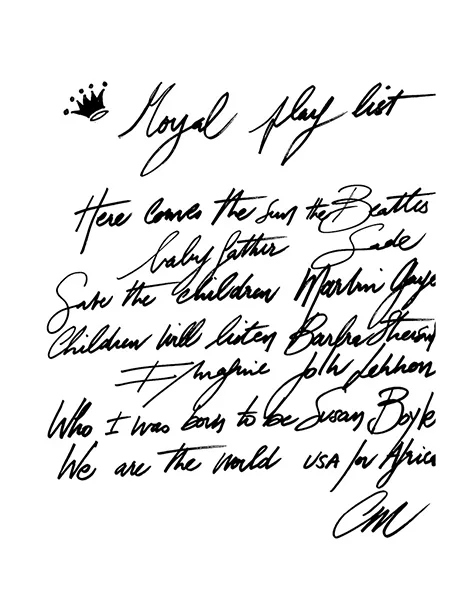 Royal play list
Here comes the sun the Beatles
baby father Sade
Save the children Marvin Gaye
Children will listen Barbra Streisand
Imagine John Lennon
Who I was born to be Susan Boyle
We are the world USA for Africa
CM